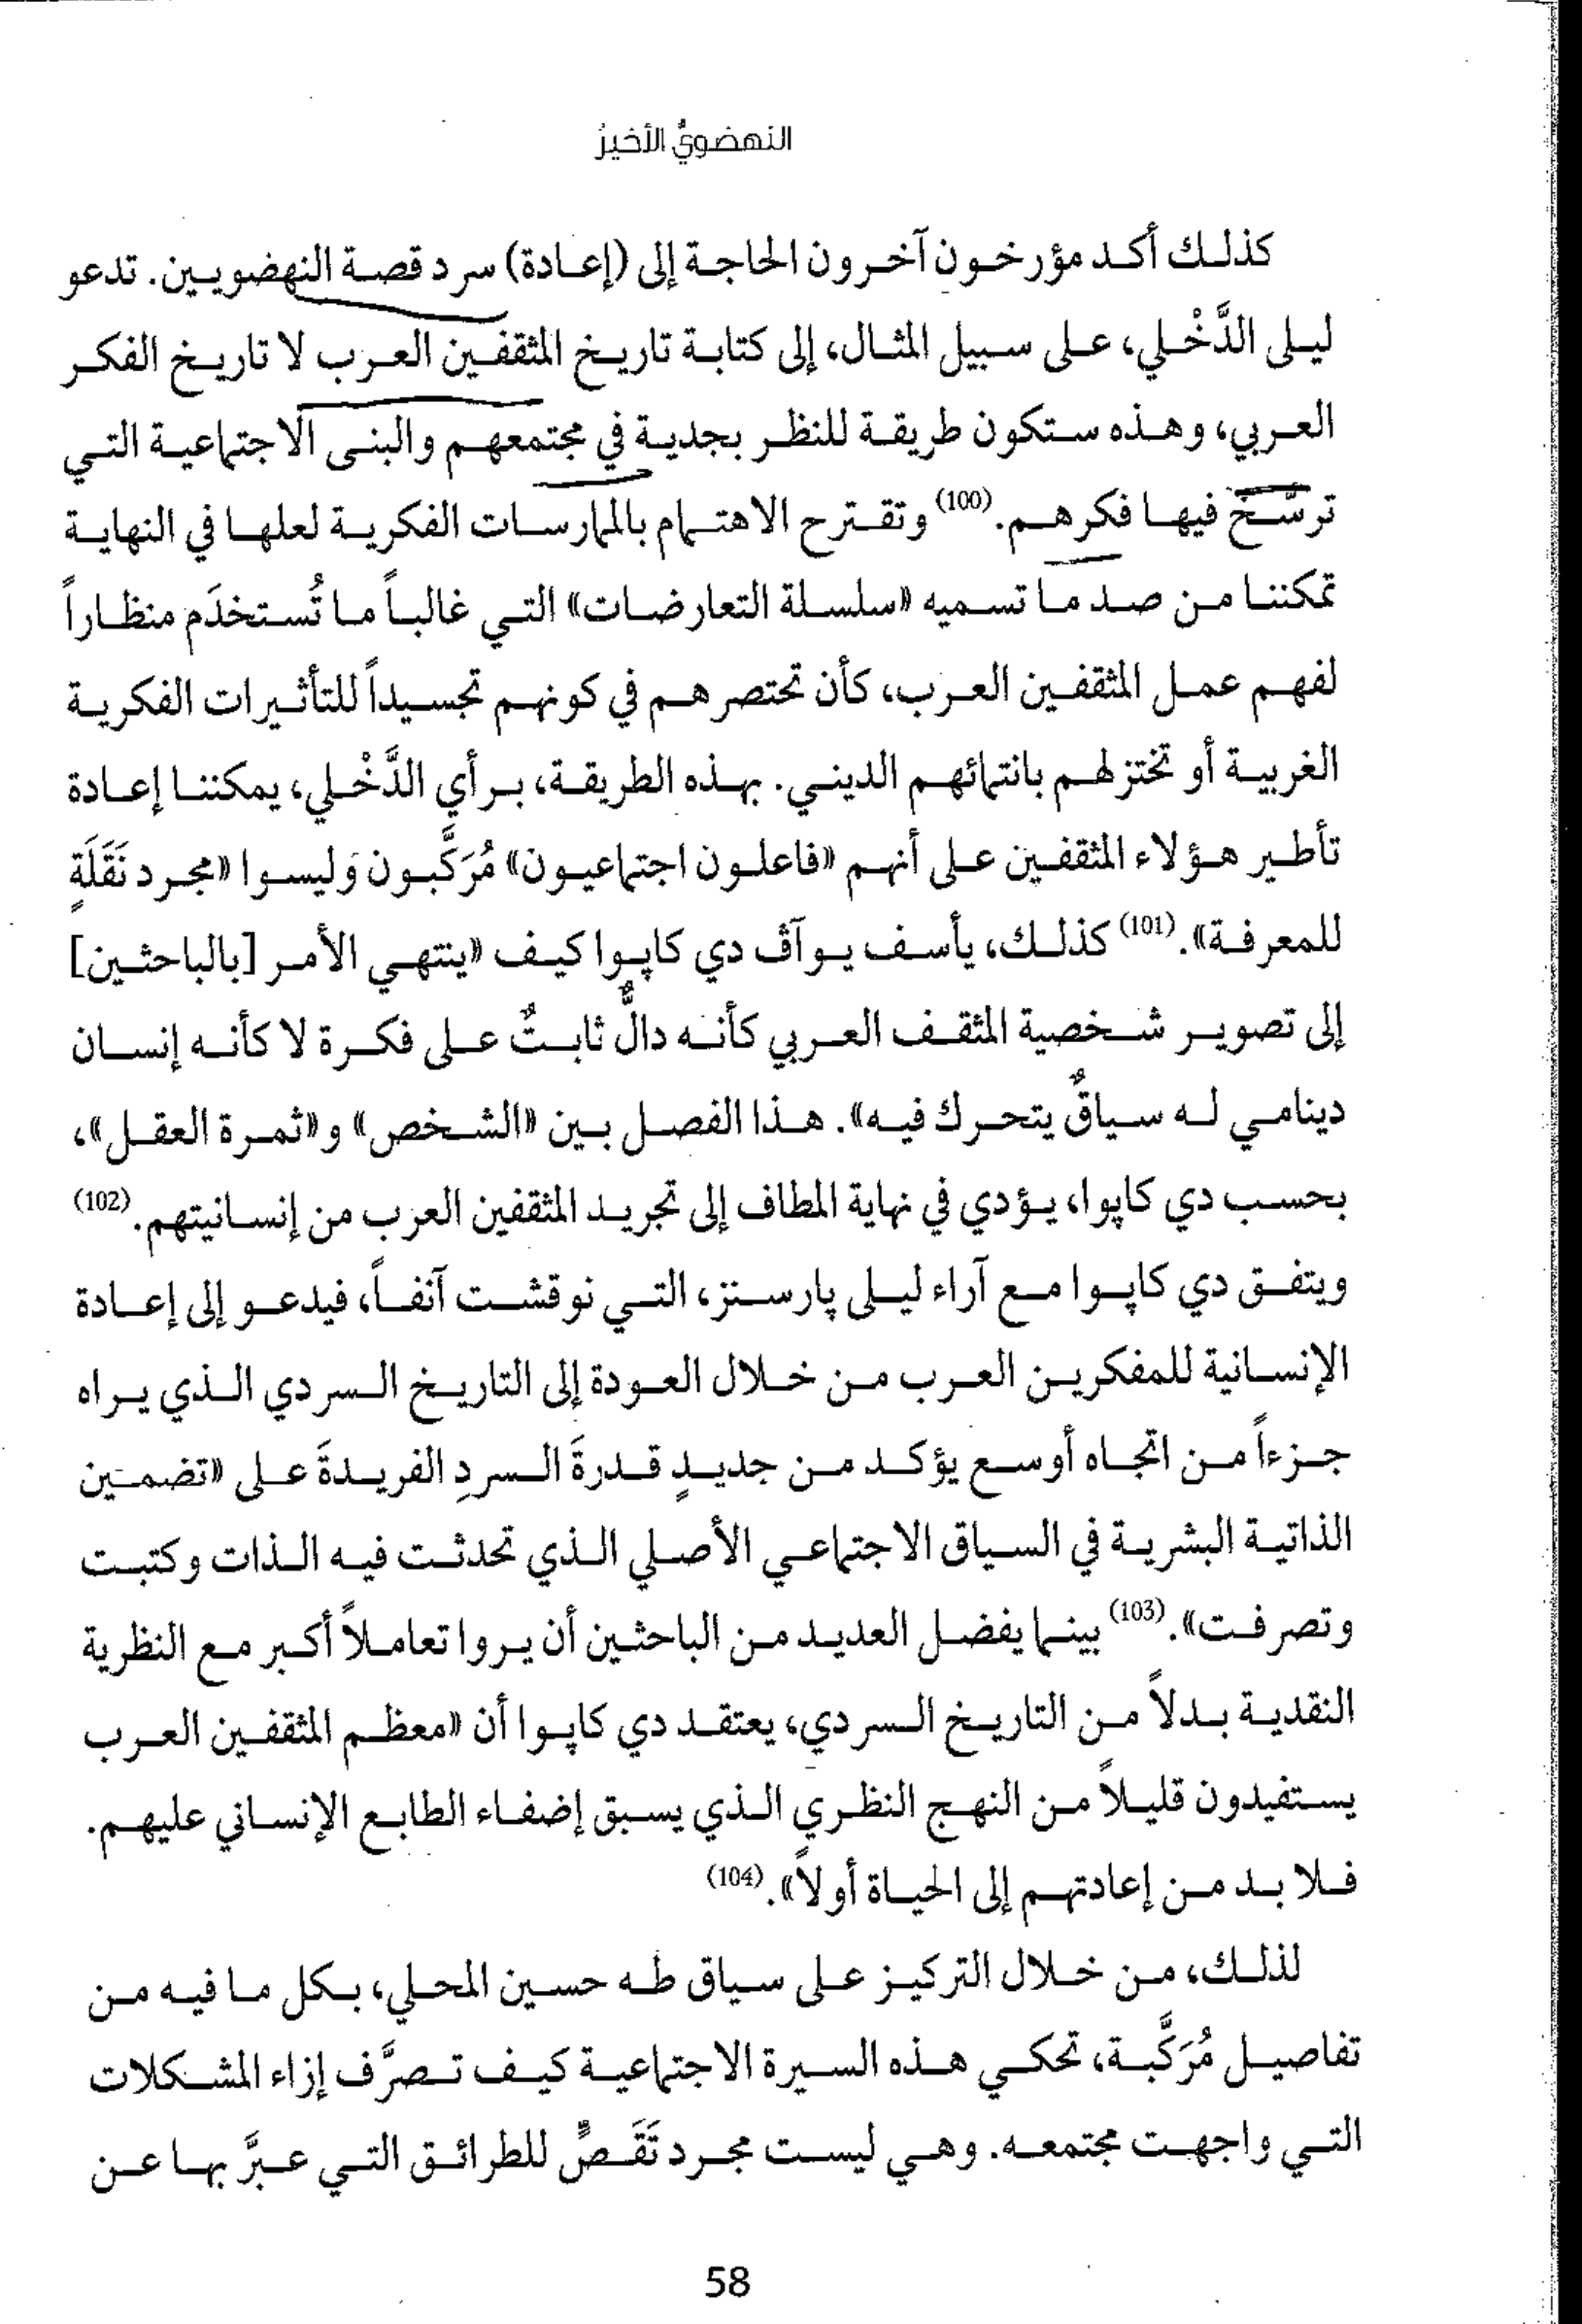 النهضويُّ الأخيرُ
كذلك أكد مؤرخون آخرون الحاجة إلى (إعادة) سرد قصة النهضويين. تدعو
ليلى الدَّخْلي، على سبيل المثال، إلى كتابة تاريخ المثقفين العرب لا تاريخ الفكر
العربي، وهذه ستكون طريقة للنظر بجدية في مجتمعهم والبنى الاجتماعية التي
ترسَّخ فيها فكرهم.(100) وتقترح الاهتمام بالممارسات الفكرية لعلها في النهاية
تمكننا من صد ما تسميه «سلسلة التعارضات» التي غالباً ما تُستخدَم منظاراً
لفهم عمل المثقفين العرب، كأن تختصرهم في كونهم تجسيداً للتأثيرات الفكرية
الغربية أو تختزلهم بانتمائهم الديني. بهذه الطريقة، برأي الدَّخْلي، يمكننا إعادة
تأطير هؤلاء المثقفين على أنهم «فاعلون اجتماعيون» مُرَكَّبون وَليسوا «مجرد نَقَلَةٍ
للمعرفة».(101) كذلك، يأسف يوآڤ دي كاپوا كيف «ينتهي الأمر [بالباحثين]
إلى تصوير شخصية المثقف العربي كأنه دالٌّ ثابتٌ على فكرة لا كأنه إنسان
دينامي له سياقٌ يتحرك فيه». هذا الفصل بين «الشخص» و«ثمرة العقل»،
بحسب دي كاپوا، يؤدي في نهاية المطاف إلى تجريد المثقفين العرب من إنسانيتهم.(102)
ويتفق دي كاپوا مع آراء ليلى پارسنز، التي نوقشت آنفاً، فيدعو إلى إعادة
الإنسانية للمفكرين العرب من خلال العودة إلى التاريخ السردي الذي يراه
جزءاً من اتجاه أوسع يؤكد من جديدٍ قدرةَ السردِ الفريدةَ على «تضمين
الذاتية البشرية في السياق الاجتماعي الأصلي الذي تحدثت فيه الذات وكتبت
وتصرفت».(103) بينما يفضل العديد من الباحثين أن يروا تعاملاً أكبر مع النظرية
النقدية بدلاً من التاريخ السردي، يعتقد دي كاپوا أن «معظم المثقفين العرب
يستفيدون قليلاً من النهج النظري الذي يسبق إضفاء الطابع الإنساني عليهم.
فلا بد من إعادتهم إلى الحياة أولاً».(104)
لذلك، من خلال التركيز على سياق طه حسين المحلي، بكل ما فيه من
تفاصيل مُرَكَّبة، تحكي هذه السيرة الاجتماعية كيف تصرَّف إزاء المشكلات
التي واجهت مجتمعه. وهي ليست مجرد تَقَصٍّ للطرائق التي عبَّر بها عن
58